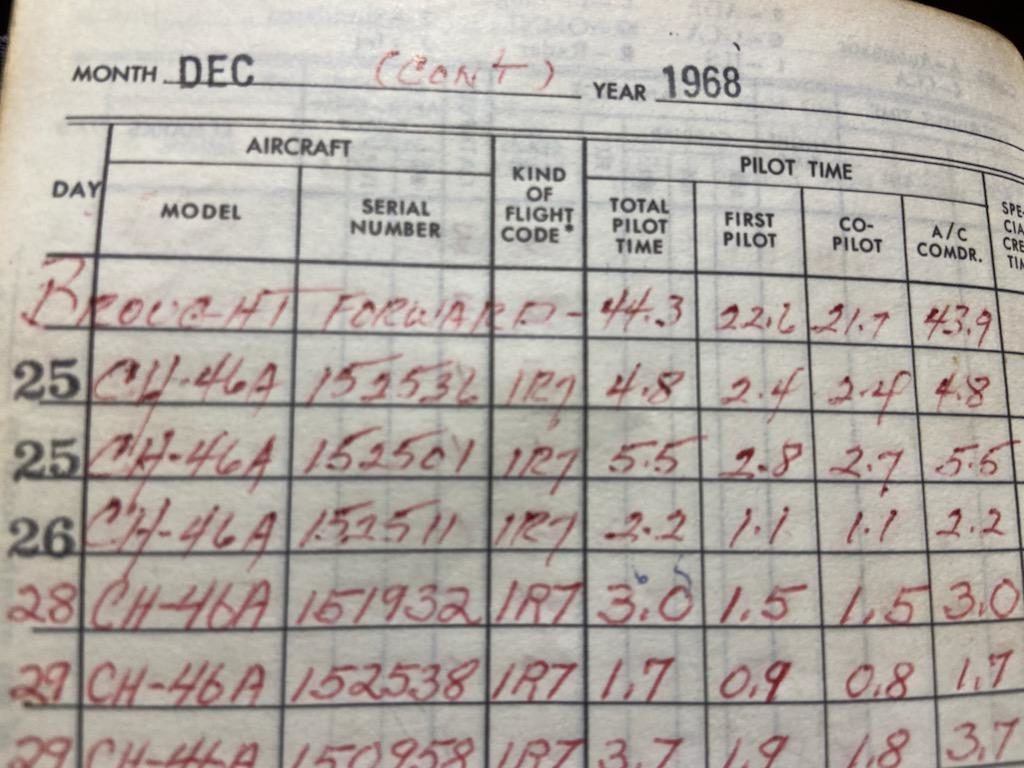 MONTH DEC (CONT) YEAR 1968
AIRCRAFT PILOT TIME
DAY MODEL SERIAL NUMBER KIND OF FLIGHT CODE* TOTAL PILOT TIME FIRST PILOT CO-PILOT A/C COMDR. SPE-CIA CRE TIM
BROUGHT FORWARD- 44.3 22.6 21.7 43.9
25 CH-46A 152536 1R7 4.8 2.4 2.4 4.8
25 CH-46A 152501 1R7 5.5 2.8 2.7 5.5
26 CH-46A 152511 1R7 2.2 1.1 1.1 2.2
28 CH-46A 151932 1R7 3.0 1.5 1.5 3.0
29 CH-46A 152538 1R7 1.7 0.9 0.8 1.7
29 CH-46A 150958 1R7 3.7 1.9 1.8 3.7